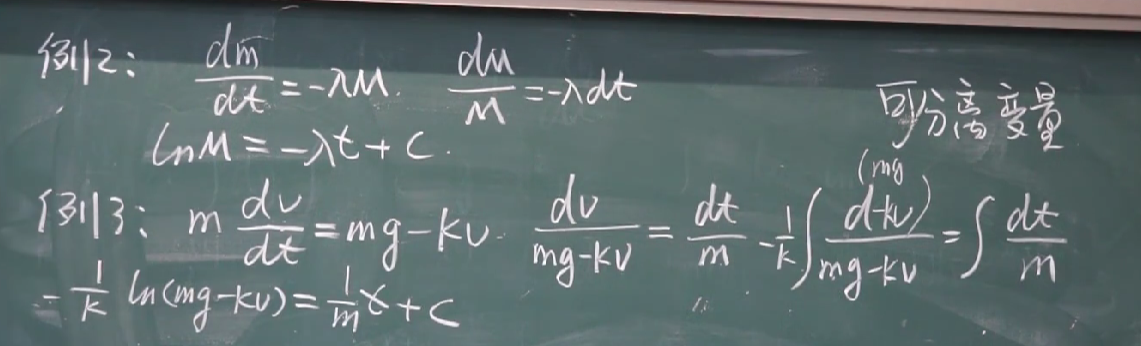 例2: dm/dt = -λM. dM/M = -λdt
可分离变量
lnM = -λt + C.
例3: m dv/dt = mg - kv. dv/(mg-kv) = dt/m -1/k ∫ d(mg-kv)/(mg-kv) = ∫ dt/m
-1/k ln(mg-kv) = 1/m t + C